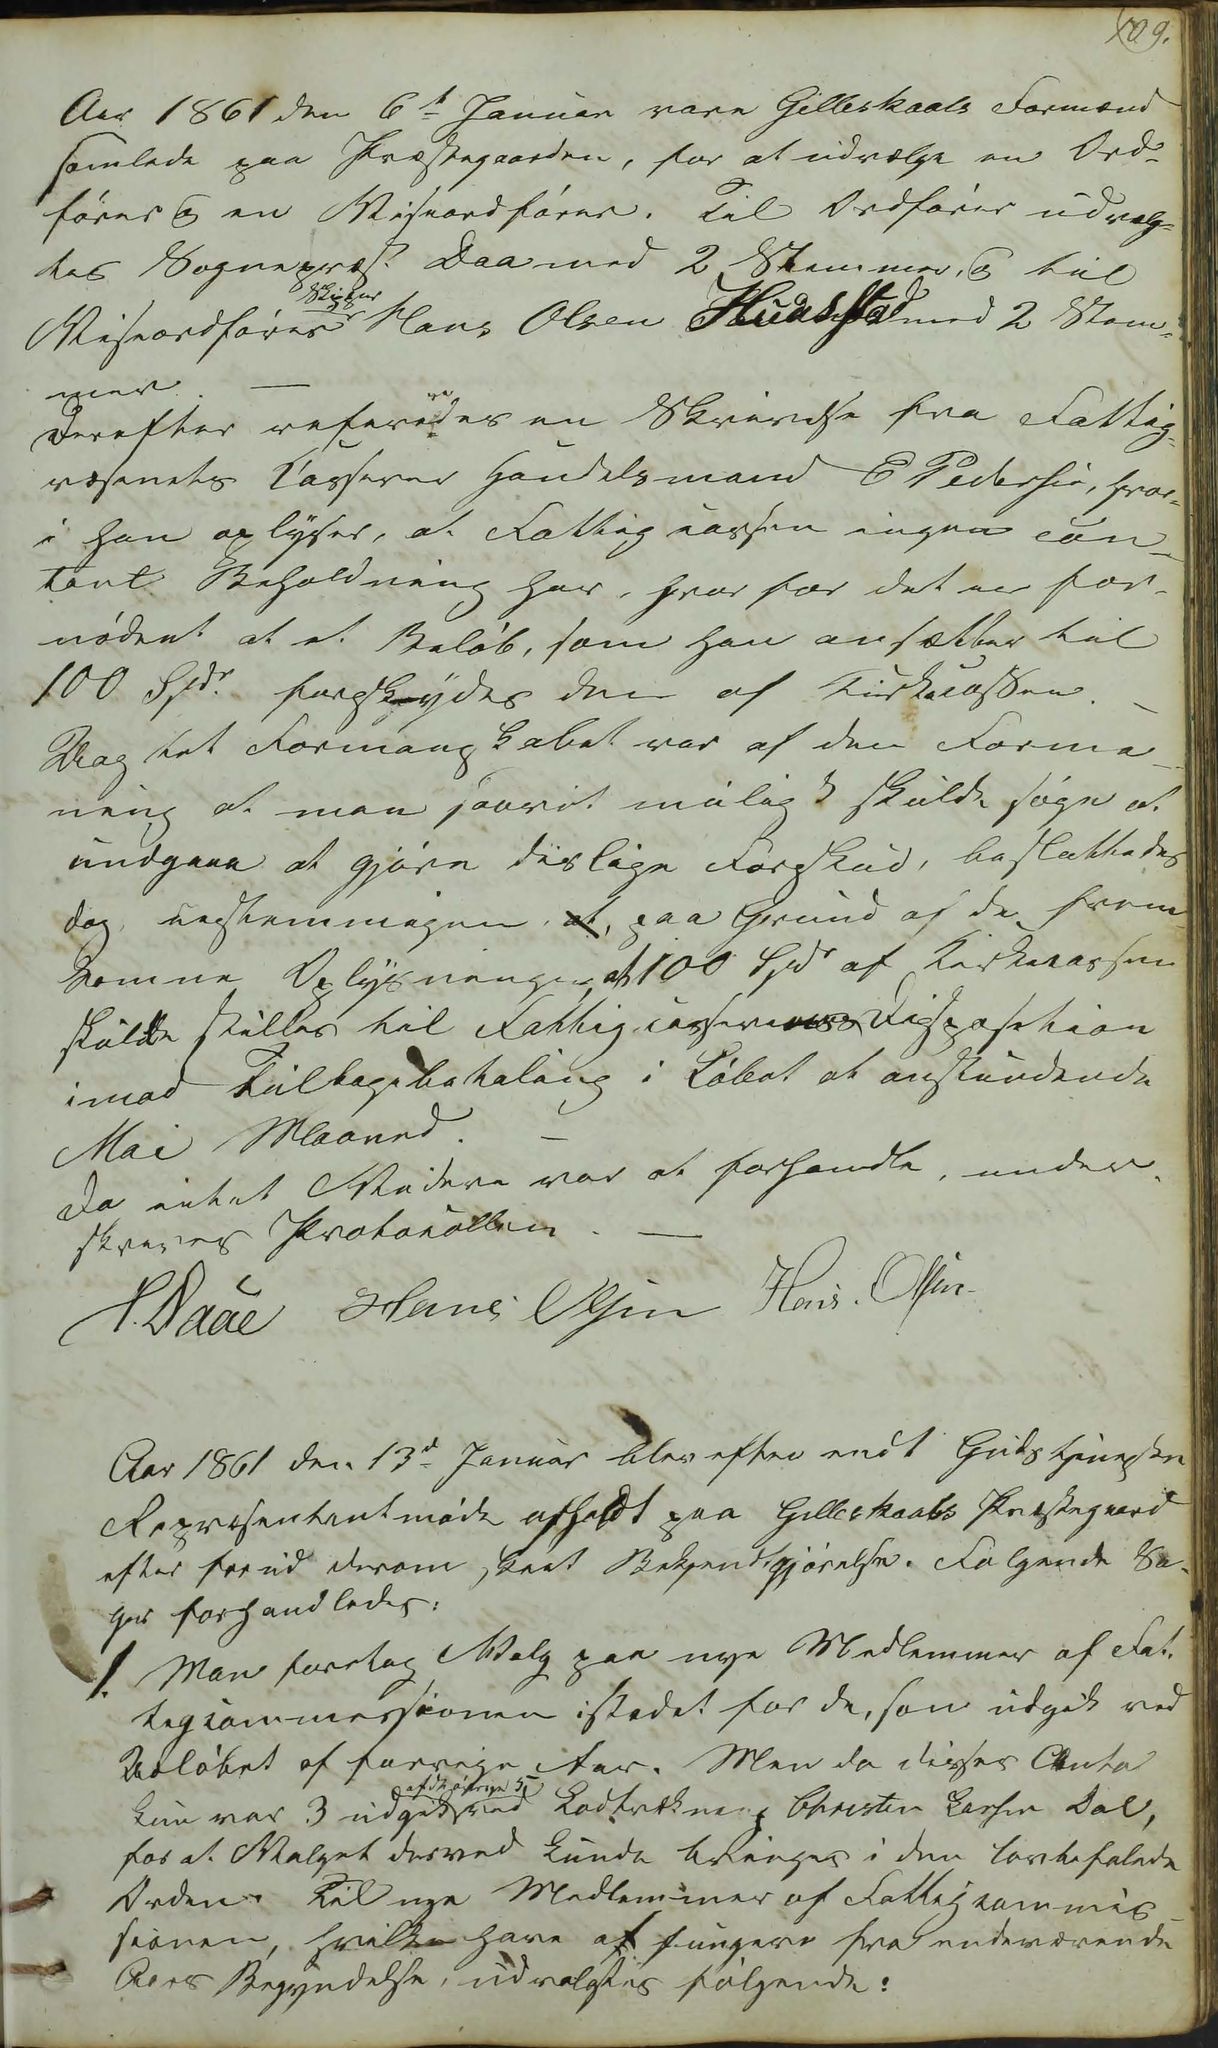 109.
Aar 1861 den 6t Januar vare Gilleskaals Formænd
samlede paa Præstegaarden, for at udvælge en Ord-
fører & en Viseordfører. Til Ordfører udvalg-
tes Sognepræst Daa med 2 Stemmer, & til
Skipper
Viseordfører Hans Olsen Hustad med 2 Stem-
mer. —
Derefter refereredes en Skrivelse fra Fattig-
væsenets Casserer Handelsmand E Pedersen, hvor-
i han oplyser, at Fattigcassen ingen con-
tant Beholdning har, hvorfor det er for-
nødent at et Beløb, som han ansætter til
100 Spdr. forskydes den af Kirkecassen. —
Uagtet Formandskabet var af den Forme-
ning at man saavit muligt skulde søge at
undgaa at gjøre dislige Forskud, besluttedes
dog eenstemmigen, at, paa Grund af de frem-
komne Oplysninger, at 100 Spdr af Kirkecassen
skulde stilles til Fattigcassererens Disposition
imod Tilbagebetaling i Løbet af anstundende
Mai Maaned. —
Da intet Videre var at forhandle, under-
skreves Protocollen. —
H. Daae Hans Olsen Hans. Olsen
Aar 1861 den 13d Januar blev efter endt Gudstjeneste
Repræsentantmøde afholdt paa Gilleskaals Præstegaard
efter forud derom skeet Bekjendtgjørelse. Følgende Sa-
ger forhandledes:
1. Man foretog Valg paa nye Medlemmer af Fat-
tigcommissionen istedet for de, som udgik ved
Udløbet af forrige Aar. Men da disses Antal
af de øvrige 5
kun var 3 udgik ved Lodtrækning Christen Larsen Dal,
for at Valget derved kunde bringes i den lovbefalede
Orden. Til nye Medlemmer af Fattigcommis-
sionen, hvilke have at fungere fra indeværende
Aars Begyndelse, udvalgtes følgende: